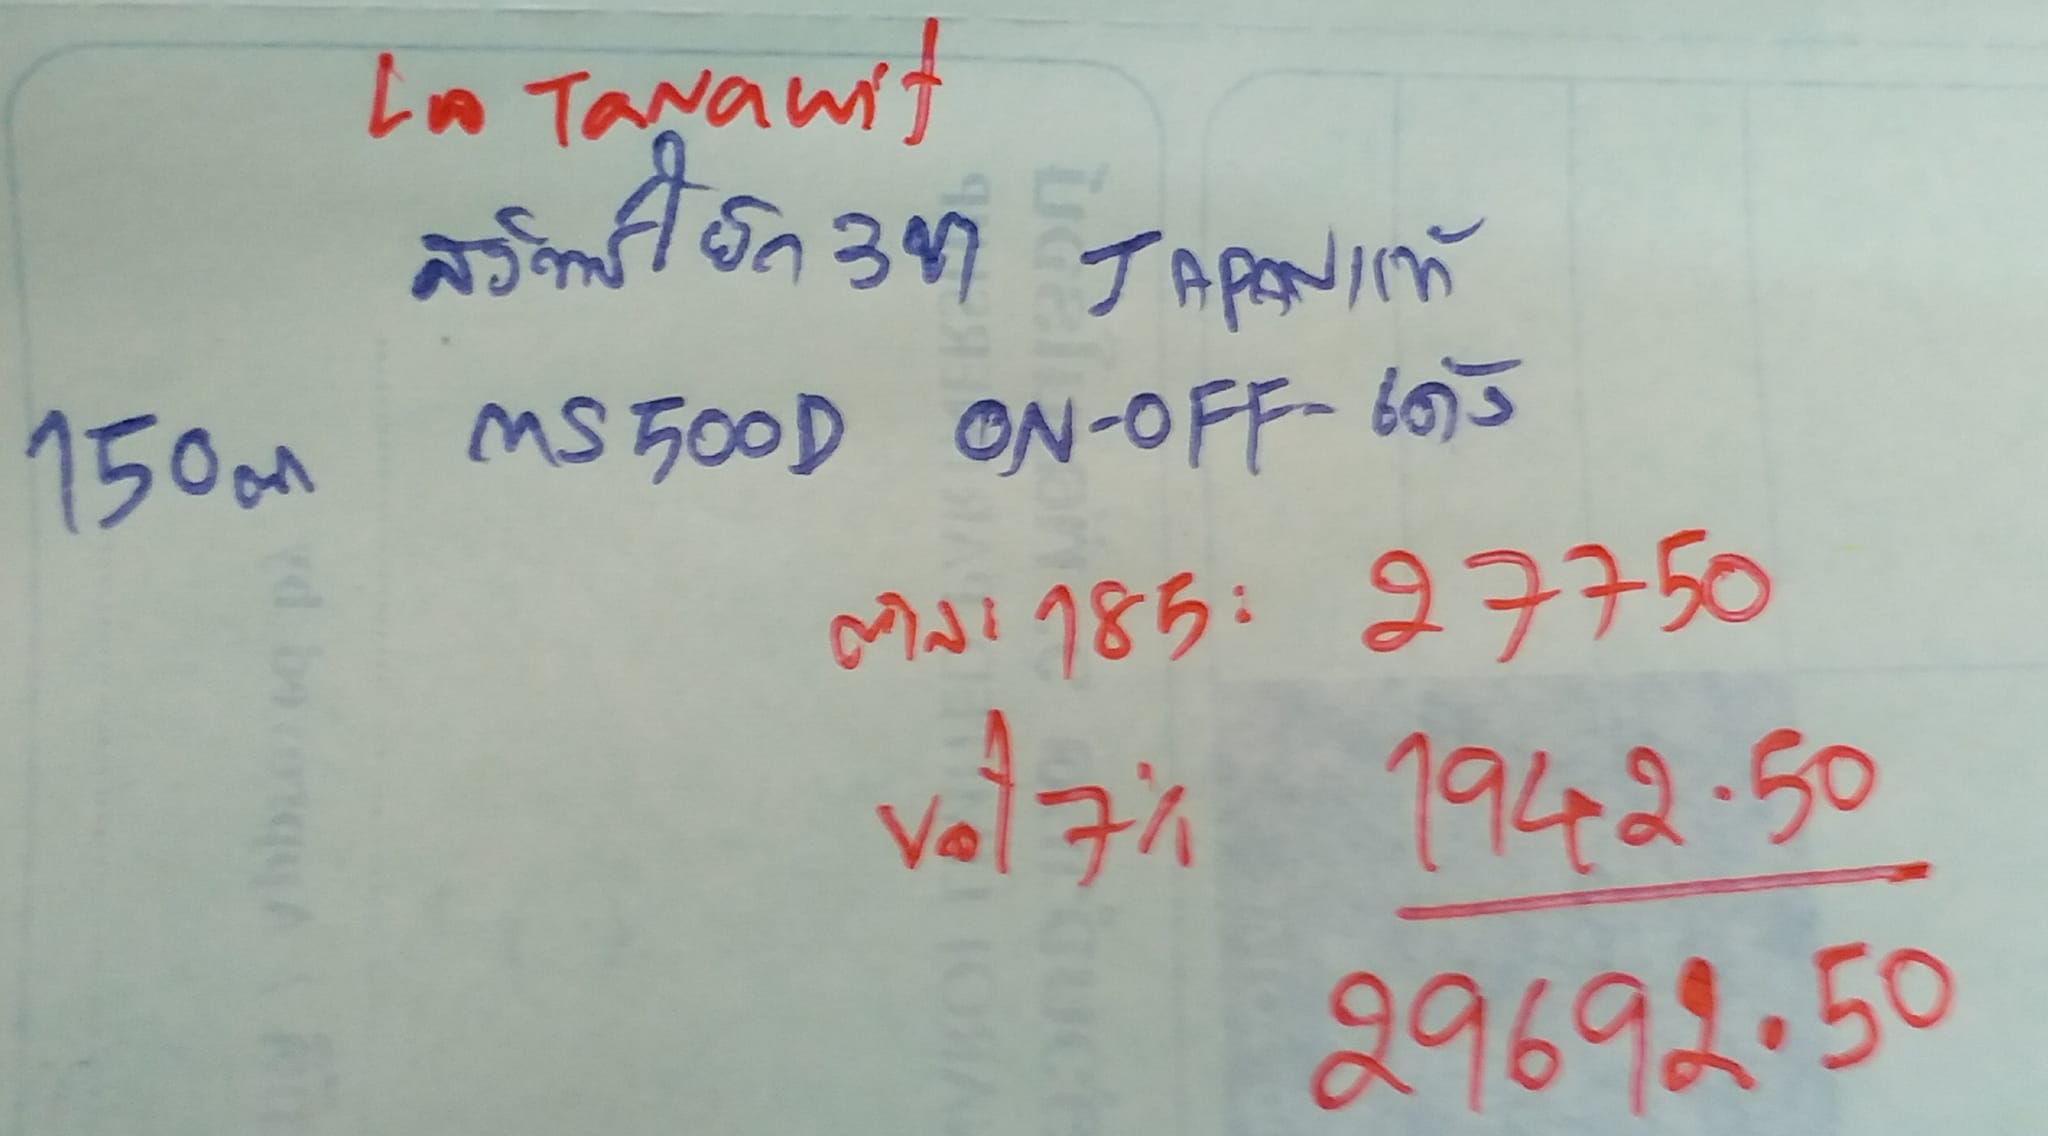 Tanawit
สวิทซ์โยก 3 ขา JAPANแท้
150 ตัว MS500D ON-OFF-เด้ง
ตัวละ 185: 27750
Vat 7% 1942.50
29692.50